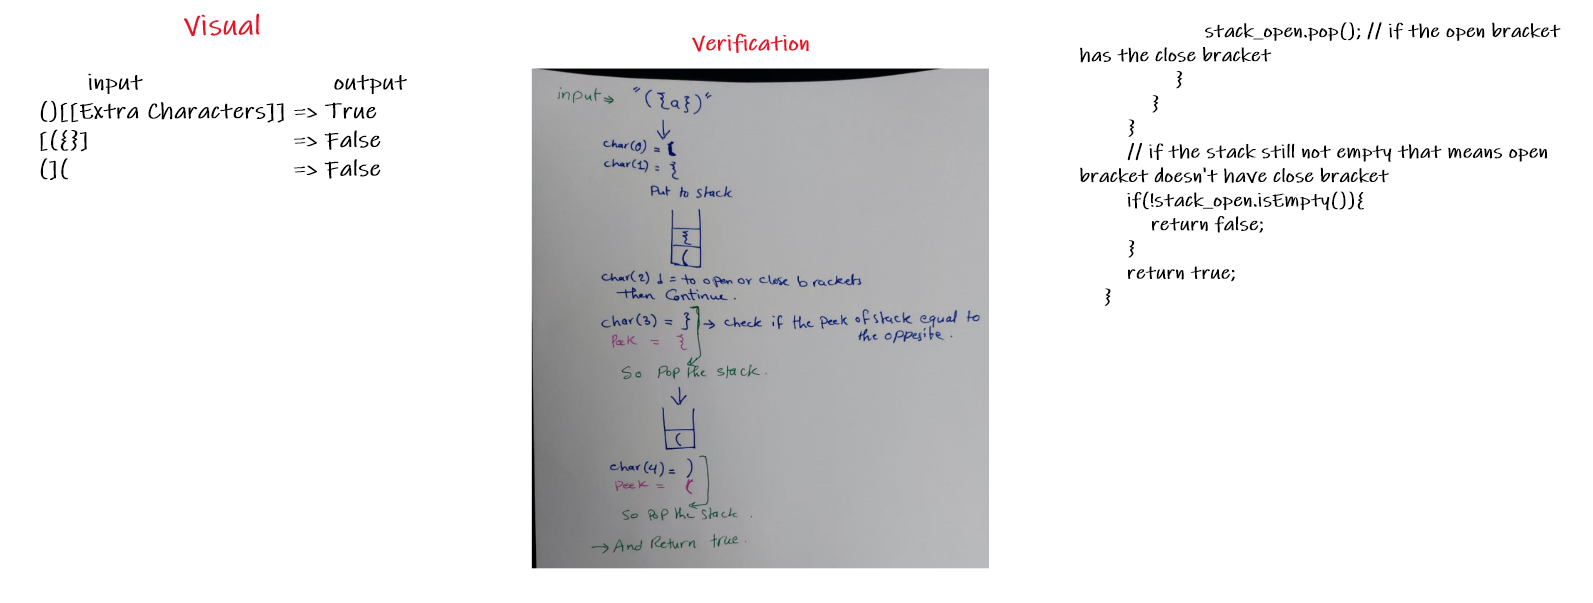 Visual
input output
()[[Extra Characters]] => True
[({}] => False
(]( => False
Verification
input → "({a})"
char(0) = (
char(1) = {
Put to stack
{
(
char(2) != to open or close brackets
then Continue.
char(3) = } → check if the Peek of stack equal to
the oppesite.
Peek = {
So Pop the stack.
(
char(4) = )
Peek = (
So Pop the stack.
→ And Return true.
stack_open.pop(); // if the open bracket
has the close bracket
}
}
}
// if the stack still not empty that means open
bracket doesn't have close bracket
if(!stack_open.isEmpty()){
return false;
}
return true;
}